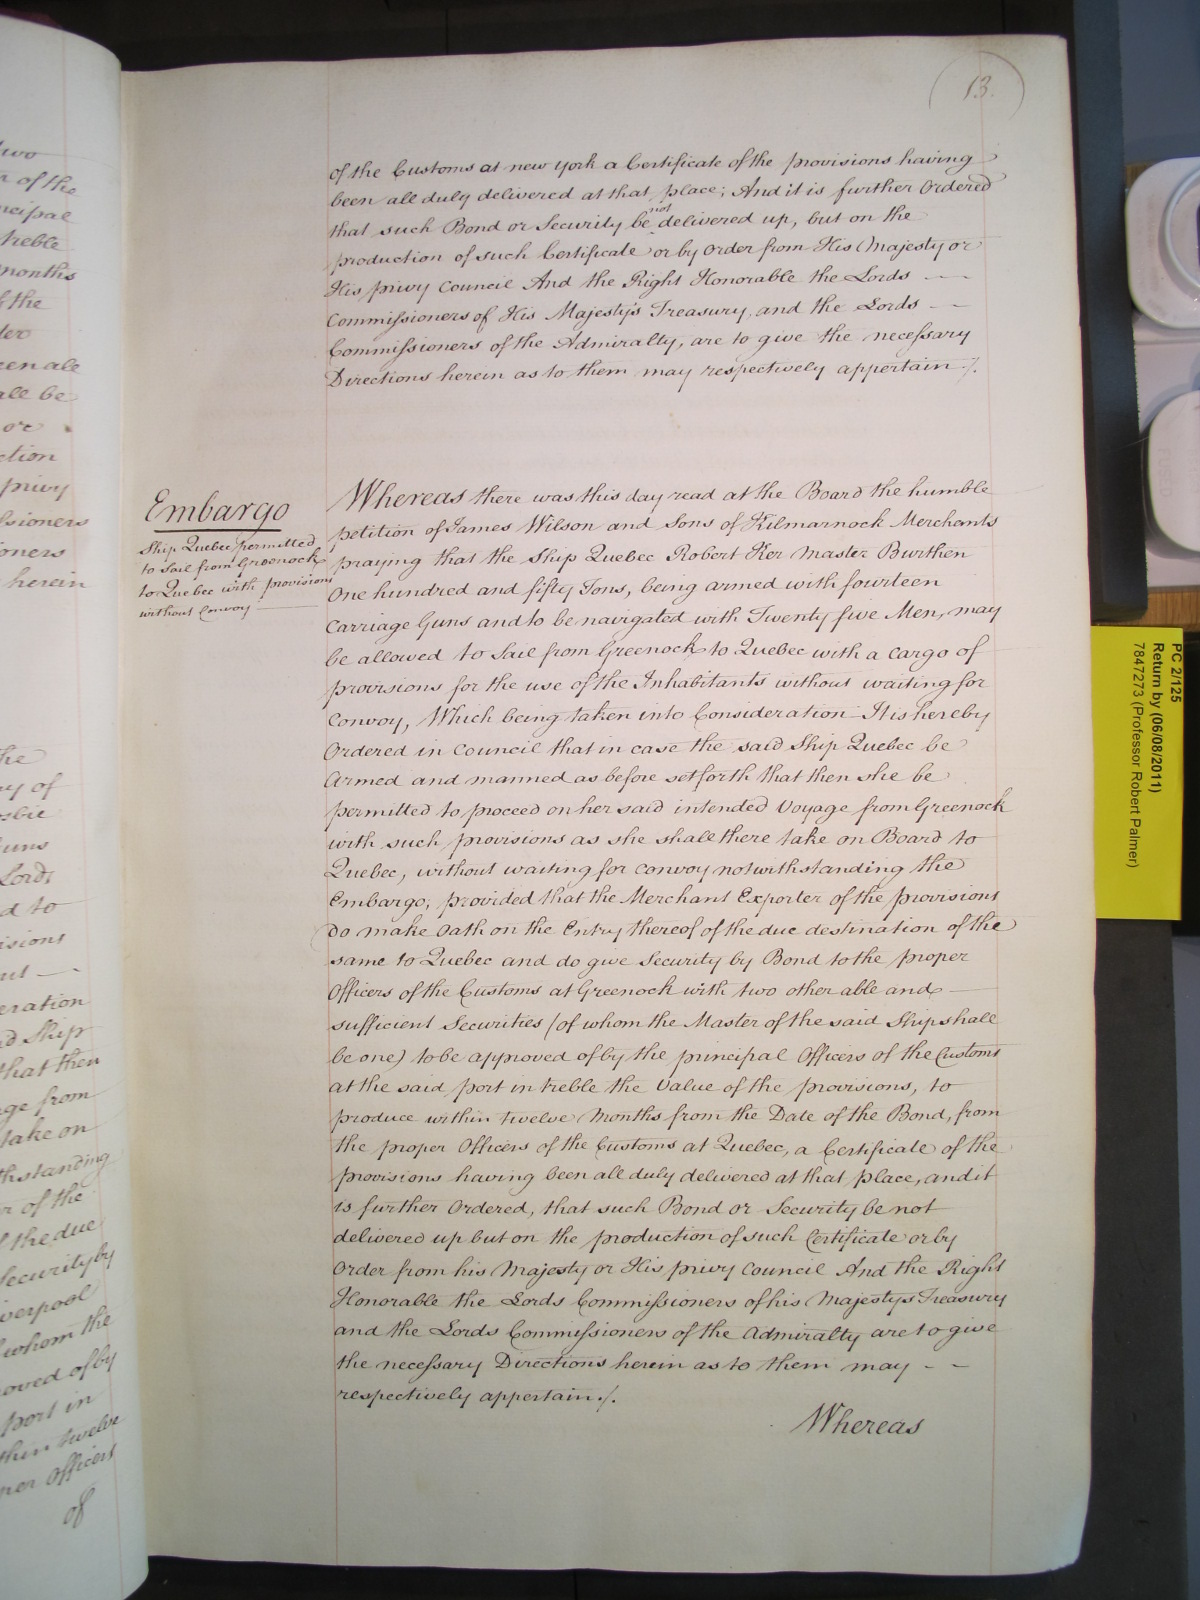 two
of the
ncipal
treble
months
the
een all
all be
or
ction
privy
ssioners
oners
herein
he
of
Lords
d to
visions
eration
d Ship
that then
ge from
take on
thstanding
of the
the due
Security by
iverpool
whom the
oved of by
port in
thin twelve
per Officers
of
13.
of the Customs at new York a Certificate of the provisions having
been all duly delivered at that place; And it is further Ordered
that such Bond or Security be not delivered up, but on the
production of such Certificate or by Order from His Majesty or
His privy Council And the Right Honorable the Lords — —
Commissioners of His Majesty's Treasury, and the Lords — —
Commissioners of the Admiralty, are to give the necessary
Directions herein as to them may respectively appertain ./.
Embargo
Ship Quebec permitted
to Sail from Greenock
to Quebec with provisions
without Convoy
Whereas there was this day read at the Board the humble
petition of James Wilson and Sons of Kilmarnock Merchants
praying that the Ship Quebec Robert Ker Master Burthen
One hundred and fifty Tons, being armed with fourteen
Carriage Guns and to be navigated with Twenty five Men, may
be allowed to Sail from Greenock to Quebec with a Cargo of
provisions for the use of the Inhabitants without waiting for
Convoy, Which being taken into Consideration It is hereby
Ordered in Council that in case the said Ship Quebec be
Armed and manned as before set forth that then she be
permitted to proceed on her said intended Voyage from Greenock
with such provisions as she shall there take on Board to
Quebec, without waiting for convoy notwithstanding the
Embargo; provided that the Merchant Exporter of the provisions
Do make Oath on the Entry thereof of the due destination of the
same to Quebec and do give Security by Bond to the proper
Officers of the Customs at Greenock with two other able and —
sufficient Securities (of whom the Master of the said Ship shall
be one) to be approved of by the principal Officers of the Customs
at the said port in treble the Value of the provisions, to
produce within twelve Months from the Date of the Bond, from
the proper Officers of the Customs at Quebec, a Certificate of the
provisions having been all duly delivered at that place, and it
is further Ordered, that such Bond or Security be not
delivered up but on the production of such Certificate or by
Order from his Majesty or His privy Council And the Right
Honorable the Lords Commissioners of his Majestys Treasury
and the Lords Commissioners of the Admiralty are to give
the necessary Directions herein as to them may — —
respectively appertain ./.
Whereas
PC 2/125
Return by (06/08/2011)
7847273 (Professor Robert Palmer)